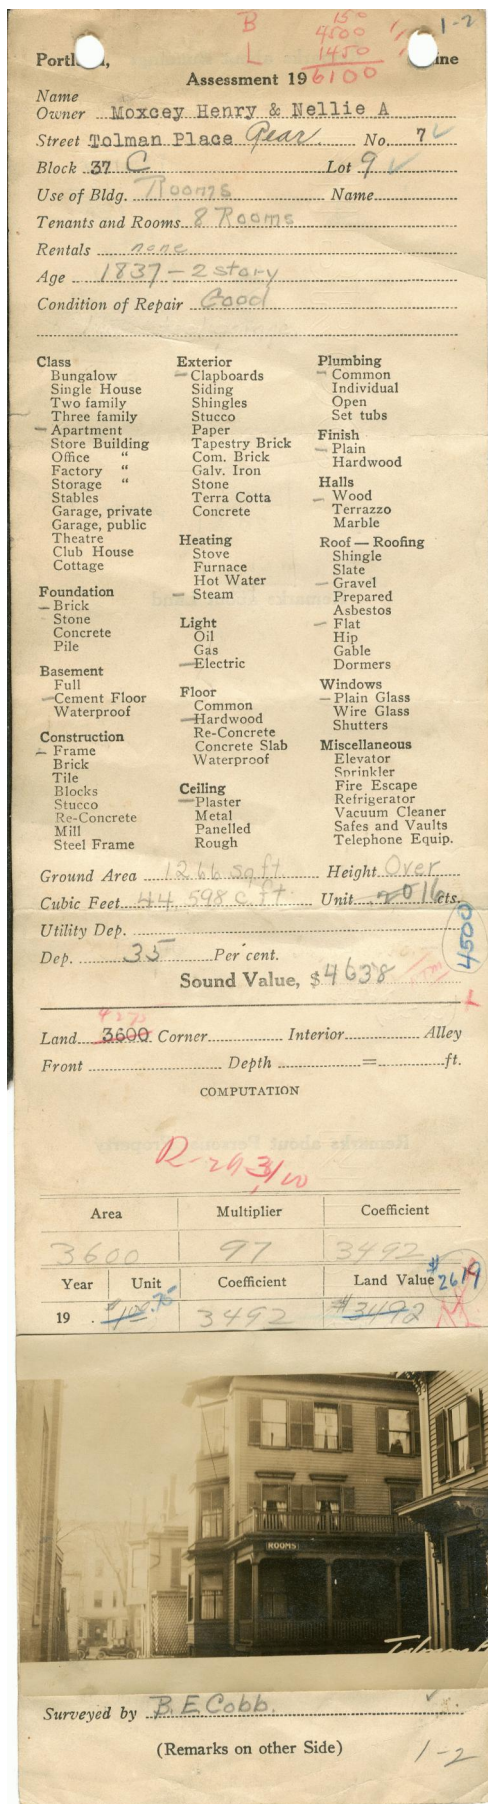 B 150 1-2
4500
L 1450
Portl , ine
Assessment 19 6100
Name
Owner Moxcey Henry & Nellie A
Street Tolman Place Rear No. 7
Block 37 C Lot 9
Use of Bldg. Rooms Name
Tenants and Rooms 8 Rooms
Rentals none
Age 1837 - 2 story
Condition of Repair Good
Class
Bungalow
Single House
Two family
Three family
Apartment
Store Building
Office "
Factory "
Storage "
Stables
Garage, private
Garage, public
Theatre
Club House
Cottage
Foundation
Brick
Stone
Concrete
Pile
Basement
Full
Cement Floor
Waterproof
Construction
Frame
Brick
Tile
Blocks
Stucco
Re-Concrete
Mill
Steel Frame
Exterior
Clapboards
Siding
Shingles
Stucco
Paper
Tapestry Brick
Com. Brick
Galv. Iron
Stone
Terra Cotta
Concrete
Heating
Stove
Furnace
Hot Water
Steam
Light
Oil
Gas
Electric
Floor
Common
Hardwood
Re-Concrete
Concrete Slab
Waterproof
Ceiling
Plaster
Metal
Panelled
Rough
Plumbing
Common
Individual
Open
Set tubs
Finish
Plain
Hardwood
Halls
Wood
Terrazzo
Marble
Roof — Roofing
Shingle
Slate
Gravel
Prepared
Asbestos
Flat
Hip
Gable
Dormers
Windows
Plain Glass
Wire Glass
Shutters
Miscellaneous
Elevator
Sprinkler
Fire Escape
Refrigerator
Vacuum Cleaner
Safes and Vaults
Telephone Equip.
Ground Area 1266 sq ft Height Over
Cubic Feet 44,598 c. ft. Unit 16 cts.
Utility Dep.
4500
Dep. 35 Per cent.
Sound Value, $ 4638
Land 3600 Corner Interior Alley
Front Depth = ft.
COMPUTATION
Area Multiplier Coefficient
3600 97 3492
Year Unit Coefficient Land Value $2619
19 . $1.00 .75 3492 $3492
ROOMS
Surveyed by B. E. Cobb.
(Remarks on other Side)
1-2